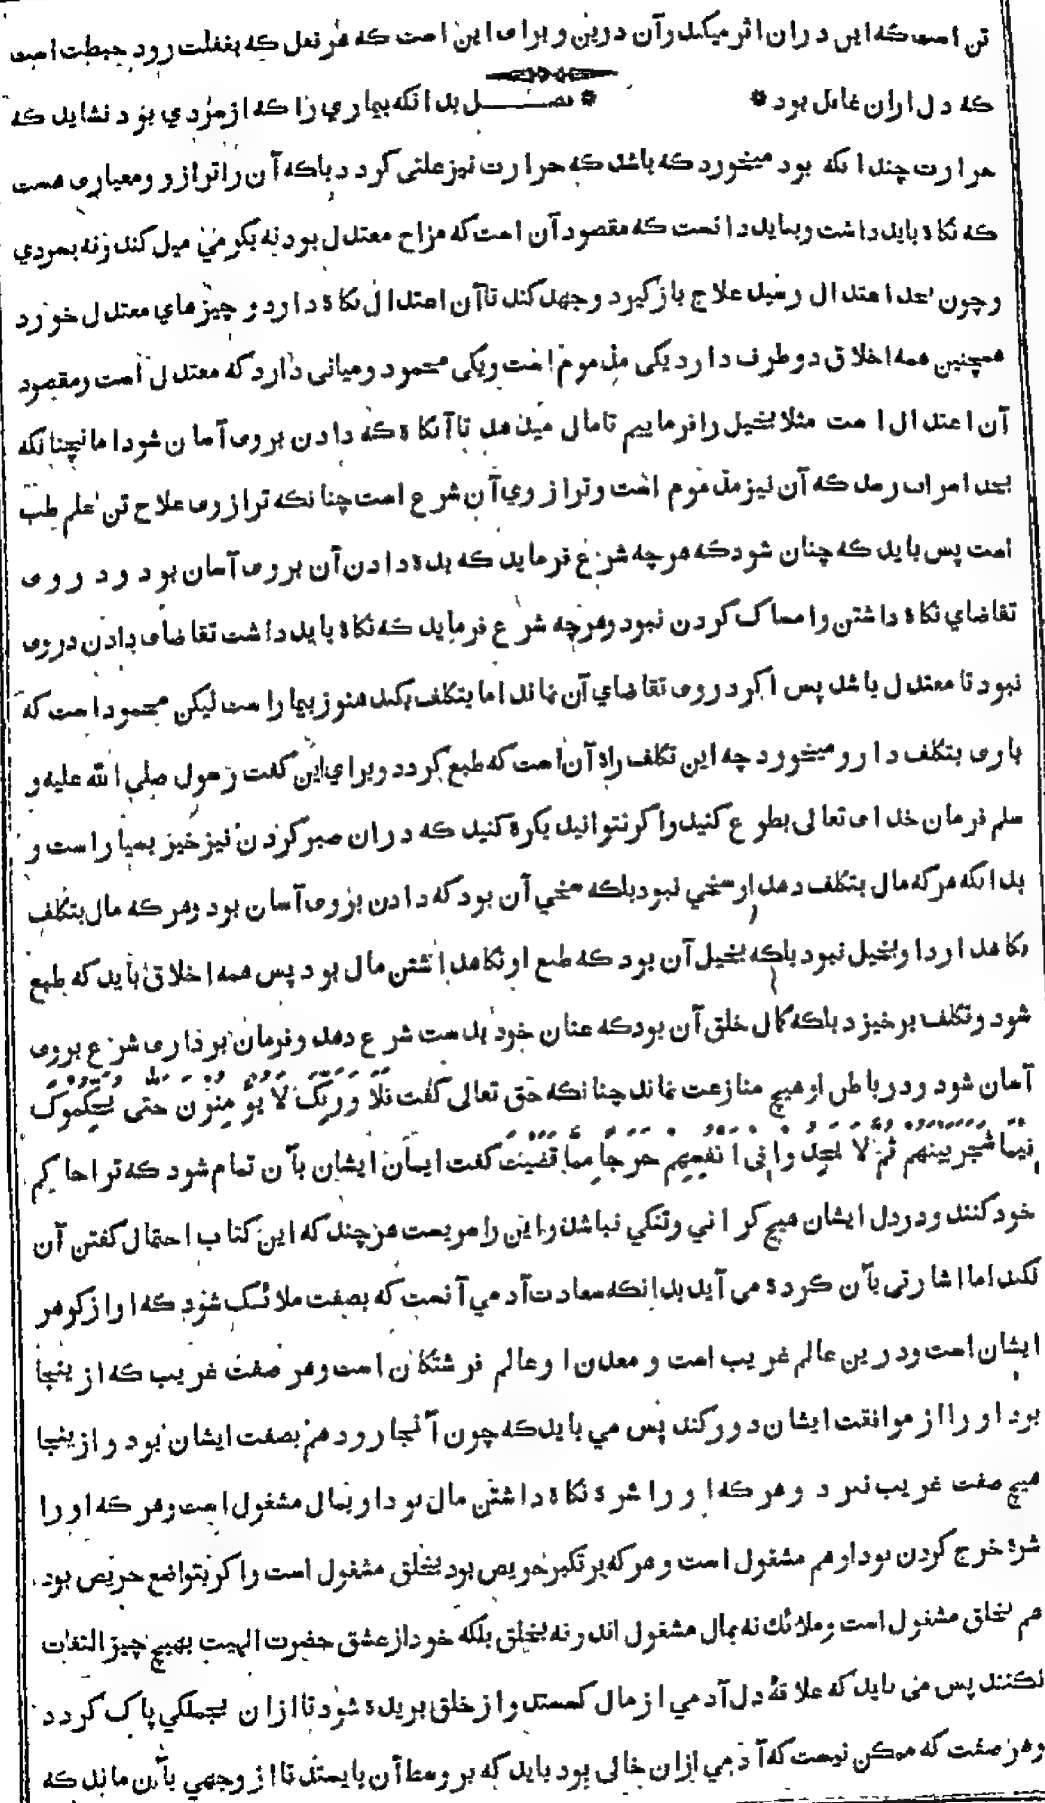 تن است که این دران اثر میکند وآن درین و برای این است که هر فعل که بغفلت رود حبطت است
که دل ازان غافل بود * * فصل بدانکه بیماری را که از سردي بود نشاید که
حرارت چندانکه بود میخورد که باشد که حرارت نیز علتی گردد بلکه آن را ترازو و معیاری هست
که نگاه باید داشت و بباید دانست که مقصود آن است که مزاج معتدل بود نه بگرمی میل کند و نه بسردي
و چون بحد اعتدال رسید علاج باز گیرد و جهد کند تا آن اعتدال نگاه دارد و چیزهاي معتدل خورد
همچنین همه اخلاق دو طرف دارد یکی مذموم است ویکی محمود و میانی دارد که معتدل است و مقصود
آن اعتدال است مثلا بخیل را فرماییم تا مال میدهد تا آنگاه که دادن بروی آسان شود اما نچنانکه
بحد اسراف رسد که آن نیز مذموم است و ترازوي آن شرع است چنانکه ترازوی علاج تن علم طب
است پس باید که چنان شود که هرچه شرع فرماید که بده دادن آن بروی آسان بود و در وی
تقاضاي نگاه داشتن و امساک کردن نبود و هرچه شرع فرماید که نگاه باید داشت تقاضای دادن در وی
نبود تا معتدل باشد پس اگر در وی تقاضاي آن نماند اما بتکلف بکند هنوز بیمار است لیکن محمود است که
باری بتکلف دارو میخورد چه این تکلف راه آن است که طبع گردد و براي این گفت رسول صلي الله علیه و
سلم فرمان خدای تعالی بطوع کنید و اگر نتوانید بکره کنید که دران صبر کردن نیز خیر بسیار است و
بدانکه هر که مال بتکلف دهد او سخي نبود بلکه سخي آن بود که دادن بروی آسان بود و هر که مال بتکلف
نگاهدارد او بخیل نبود بلکه بخیل آن بود که طبع او نگاهداشتن مال بود پس همه اخلاق باید که طبع
شود و تکلف برخیزد بلکه کمال خلق آن بود که عنان خود بدست شرع دهد و فرمان برداری شرع بروی
آسان شود و در باطن او هیچ منازعت نماند چنانکه حق تعالی گفت فَلَا وَرَبِّكَ لَا يُؤْمِنُونَ حَتَّى يُحَكِّمُوكَ
فِيمَا شَجَرَ بَيْنَهُمْ ثُمَّ لَا يَجِدُوا فِي أَنْفُسِهِمْ حَرَجًا مِمَّا قَضَيْتَ گفت ایمان ایشان بآن تمام شود که ترا حاکم
خود کنند و در دل ایشان هیچ گراني و تنگي نباشد و این را سریست هرچند که این کتاب احتمال گفتن آن
نکند اما اشارتی بآن کرده می آید بدانکه سعادت آدمي آنست که بصفت ملائک شود که او از گوهر
ایشان است و درین عالم غریب است و معدن او عالم فرشتگان است و هر صفت غریب که از ینجا
برد او را از موافقت ایشان دور کند پس می باید که چون آنجا رود هم بصفت ایشان بود و از ینجا
هیچ صفت غریب نبرد و هر که او را شره نگاه داشتن مال بود او بمال مشغول است و هر که او را
شره خرج کردن بود او هم مشغول است و هر که بر تکبر حریص بود بخلق مشغول است و اگر بتواضع حریص بود
هم بخلق مشغول است و ملائک نه بمال مشغول اند و نه بخلق بلکه خود از عشق حضرت الهیت بهیچ چیز التفات
نکنند پس می باید که علاقهٔ دل آدمي از مال گسسته و از خلق بریده شود تا ازان بجملگي پاک گردد
و هر صفت که ممکن نیست که آدمي ازان خالی بود باید که بر وسط آن بایستد تا از وجهي بآن ماند که